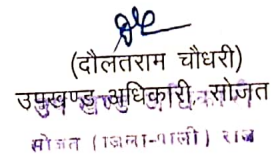 (दौलतराम चौधरी)
उपखण्ड अधिकारी, सोजत
सोजत (जिला-पाली) राज